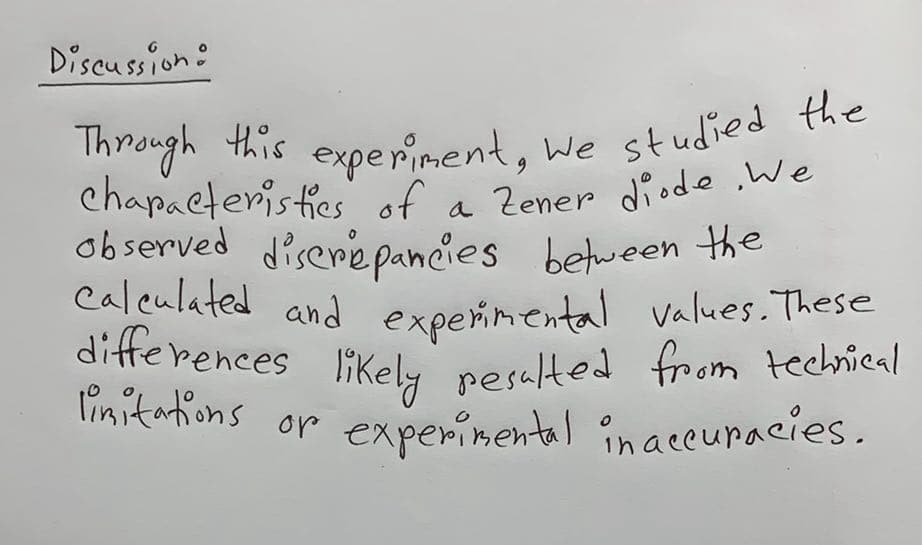 Discussion:
Through this experiment, we studied the
characteristics of a Zener diode. We
observed discrepancies between the
calculated and experimental values. These
differences likely resulted from technical
limitations or experimental inaccuracies.